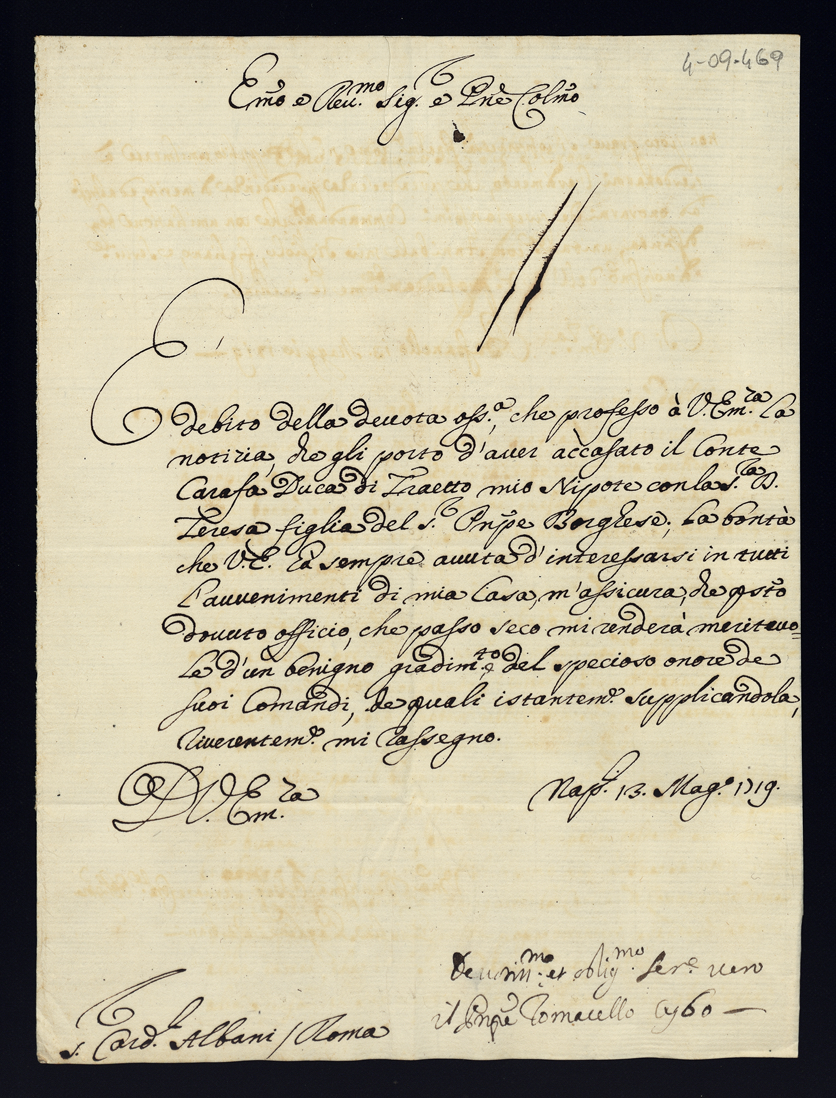 4-09-469
Emo e Reu.mo Sig.r e Pne Colmo
E debito della deuota oss.a, che professo à V.Em.za la
notizia, che gli porto d'auer àccasato il Conte
Carafa Duca di Traetto mio Nipote con la S.ra D.
Teresa figlia del S.r Pnpe Borghese; La bontà
che V.E. hà sempre auuta d'interessarsi in tutti
l'auuenimenti di mia Casa, m'assicura, che qsto
douuto officio, che passo seco mi renderà meriteuo=
le d'un benigno gradim.to e del specioso onore de
suoi Comandi, de quali istantem.e supplicandola,
riuerentem.e mi rassegno.
D V. Em.za
Nap.li 13. Mag.o 1719.
Deuotiss.mo et oblig.mo Ser.e uero
il Pnpe Tomacello Cybo
S.r Card.l Albani / Roma